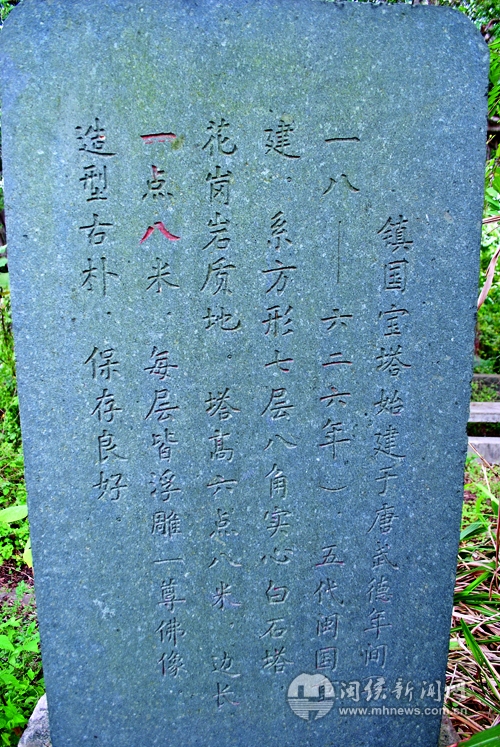 镇国宝塔始建于唐武德年间
一八——六二六年）、五代闽国
建、系方形七层八角实心白石塔
花岗岩质地。塔高六点八米、边长
一点八米、每层皆浮雕一尊佛像
造型古朴、保存良好。
闽侯新闻网
www.mhnews.com.cn